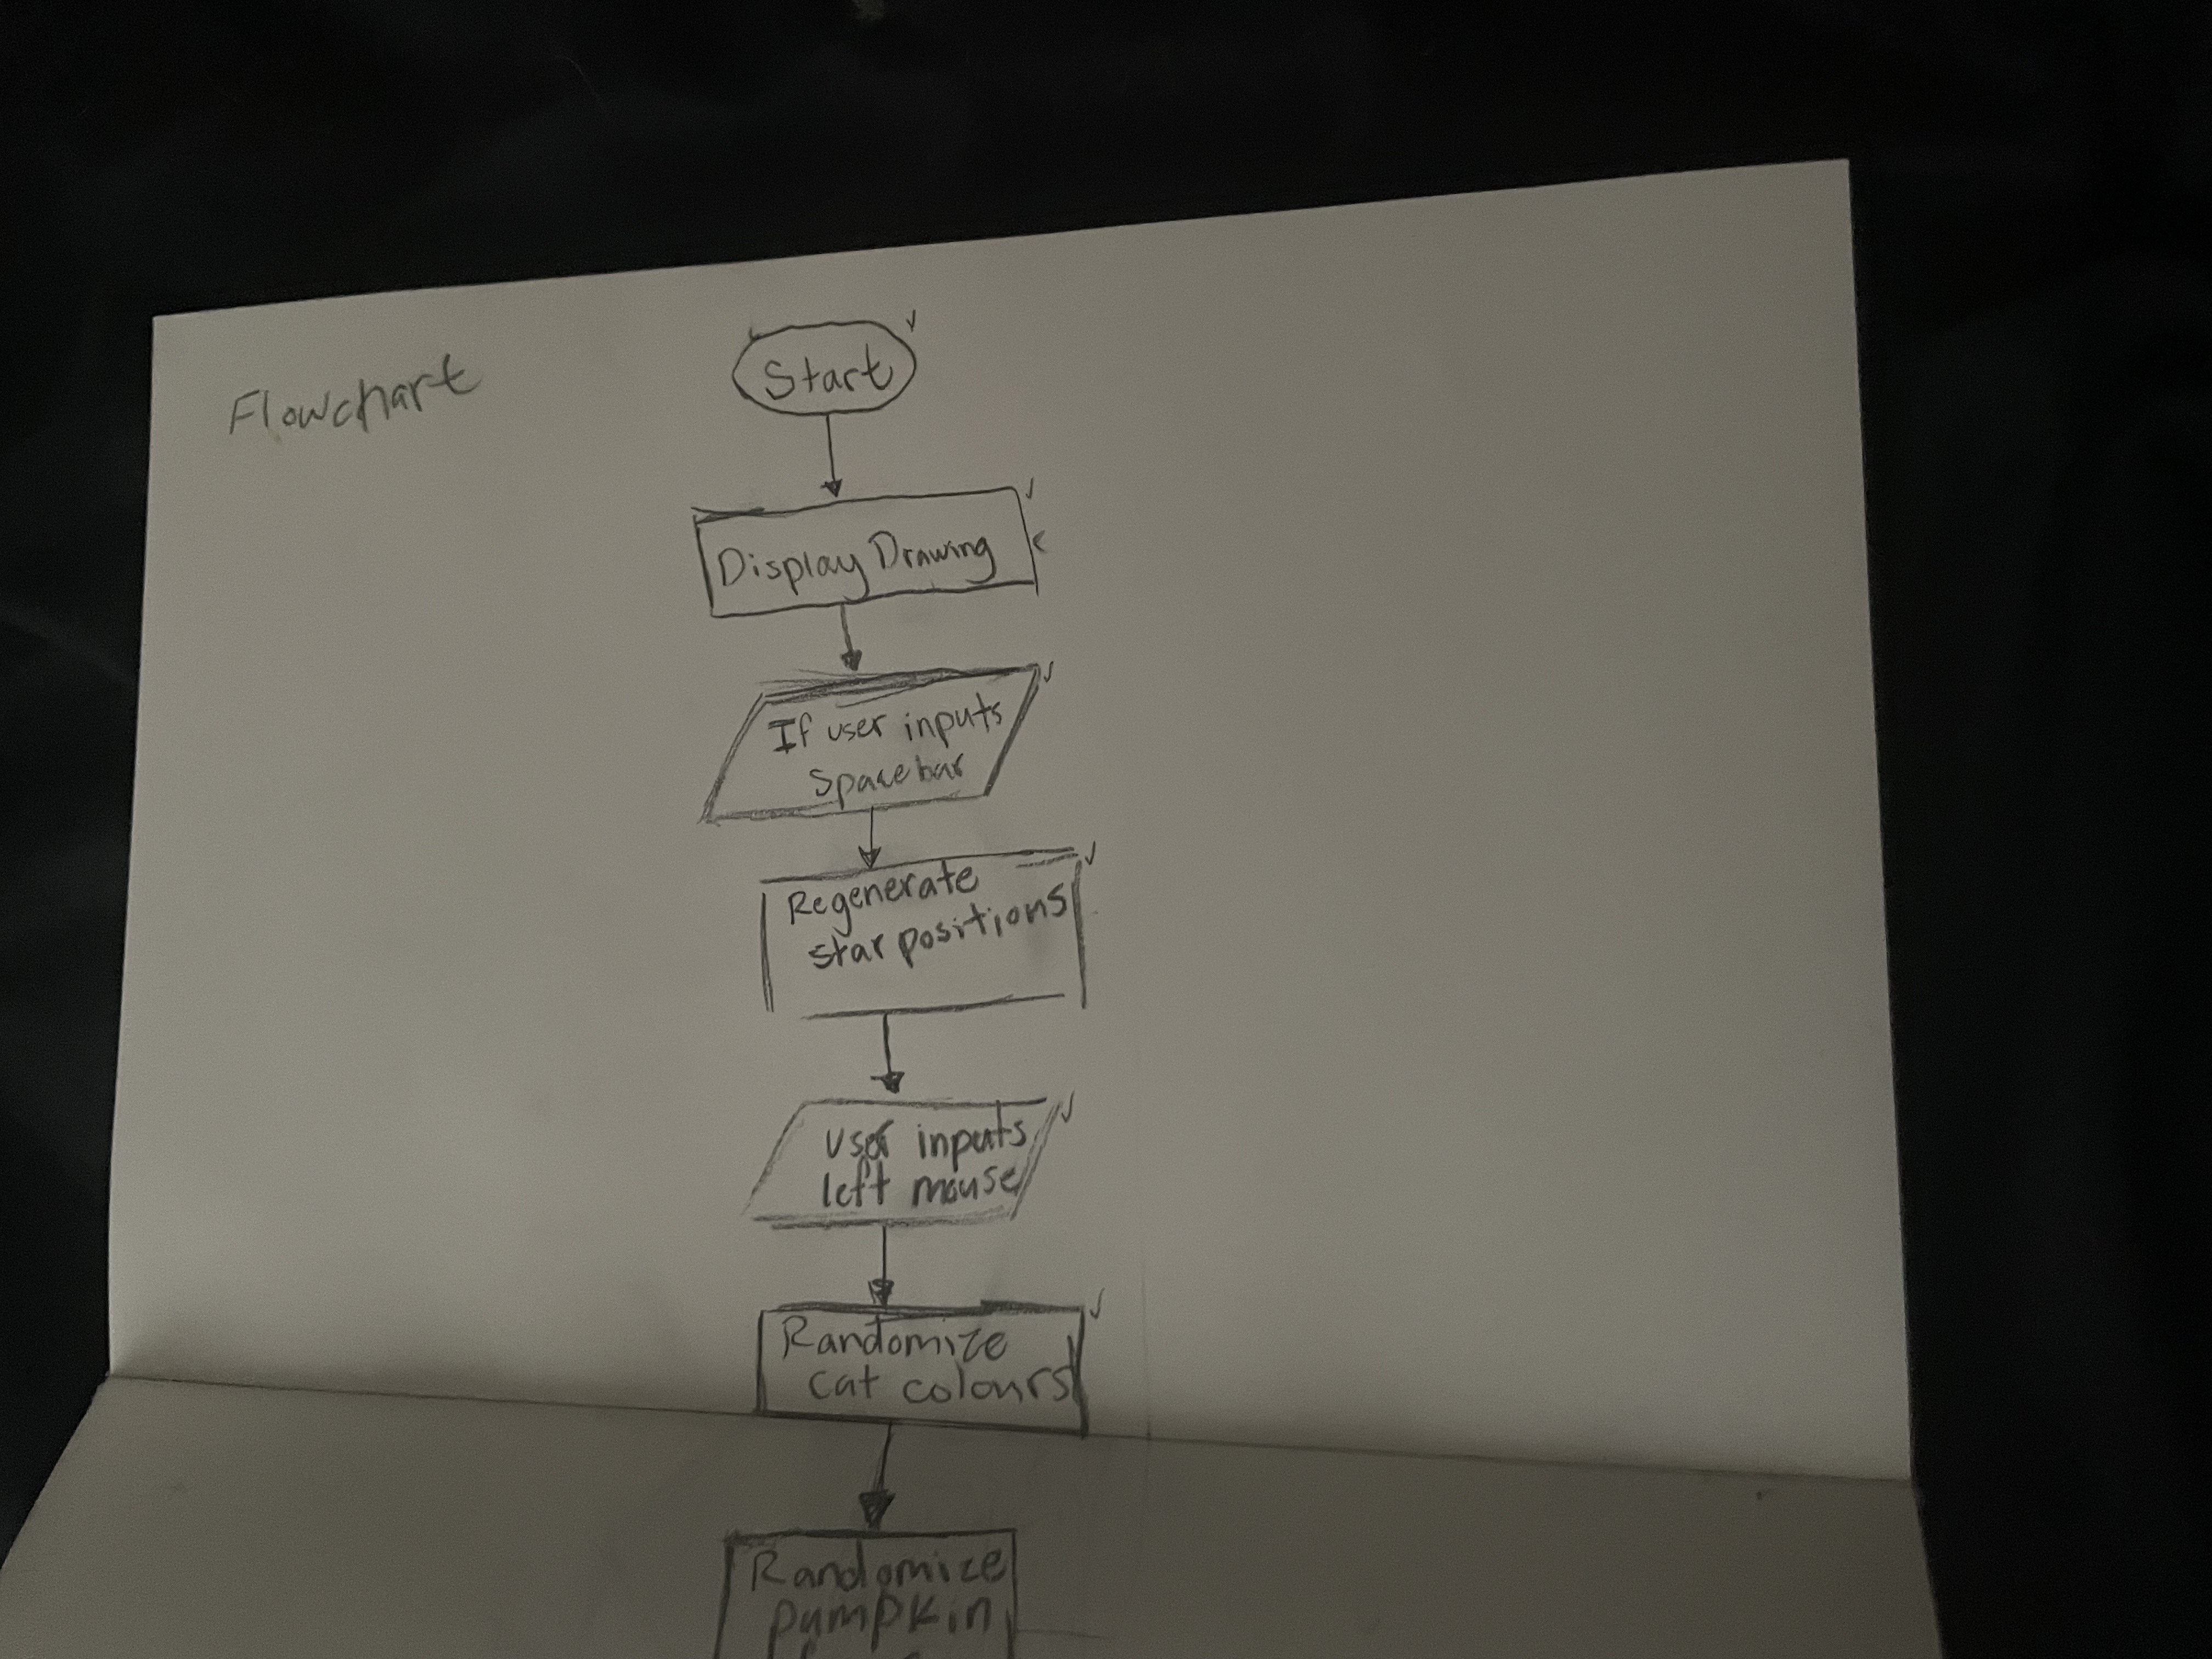 Flowchart
Start
Display Drawing
If user inputs
Spacebar
Regenerate
star positions
User inputs
left mouse
Randomize
cat colours
Randomize
pumpkin